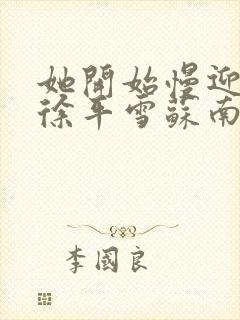 她開始慢迎
徐平雪蘇南
李國良